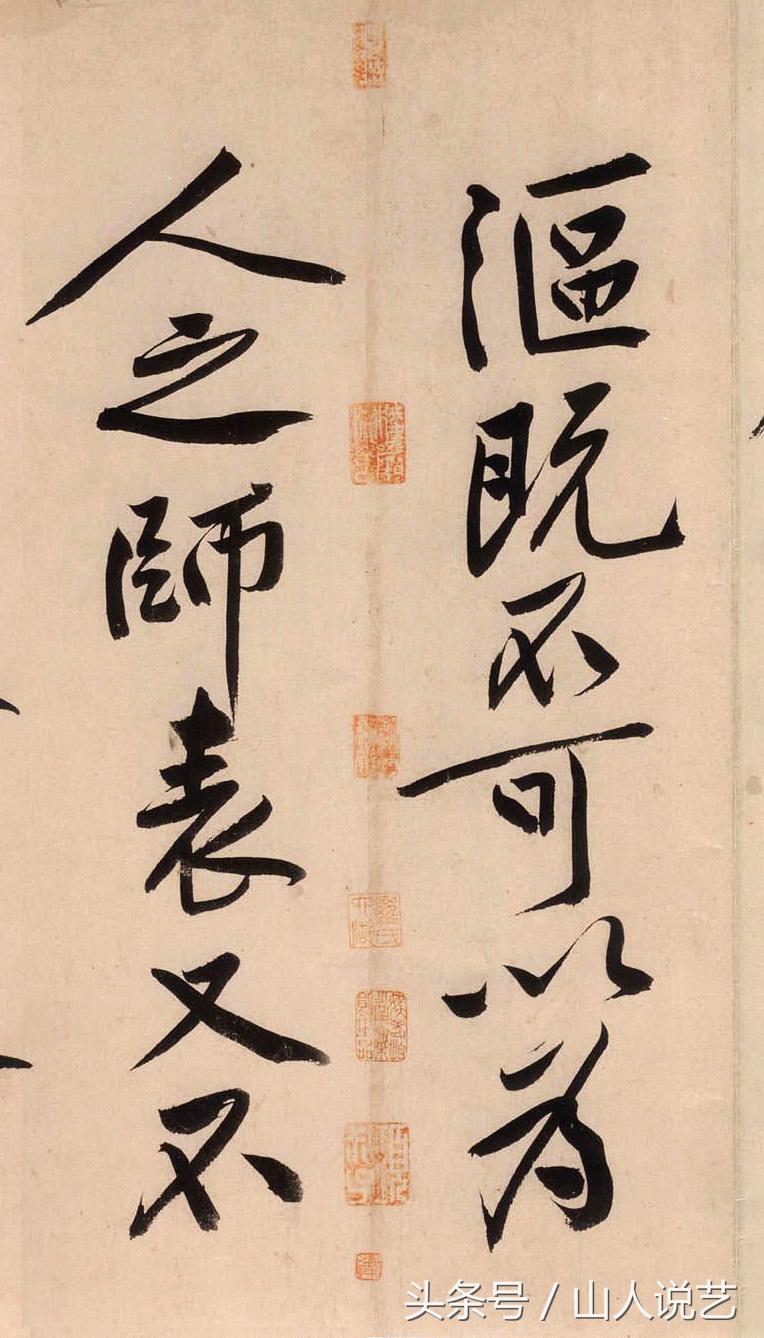 漚既不可以為
人之師表又不
头条号 / 山人说艺